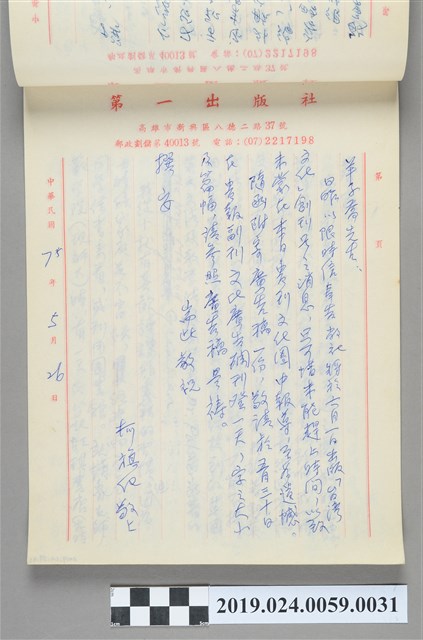 第一出版社
高雄市新興區八德二路37號
郵政劃儲名40013號 電話：(07)2217198
第 頁
羊子喬先生：
日昨以限時信奉告敝社將於六月一日出版「台灣
文化」創刊号之消息，只可惜未能趕上時間，以致
未蒙在本日貴刊文化圈中報導，至為遺憾。
隨函附寄廣告稿一份，敬請於五月三十日
在貴報副刊文化廣告欄刊登一天，字之大小
及篇幅，請參照廣告稿是禱。
耑此敬祝
撰安
柯旗化敬上
中華民國 75 年 5 月 26 日
(07)2217198
2019.024.0059.0031